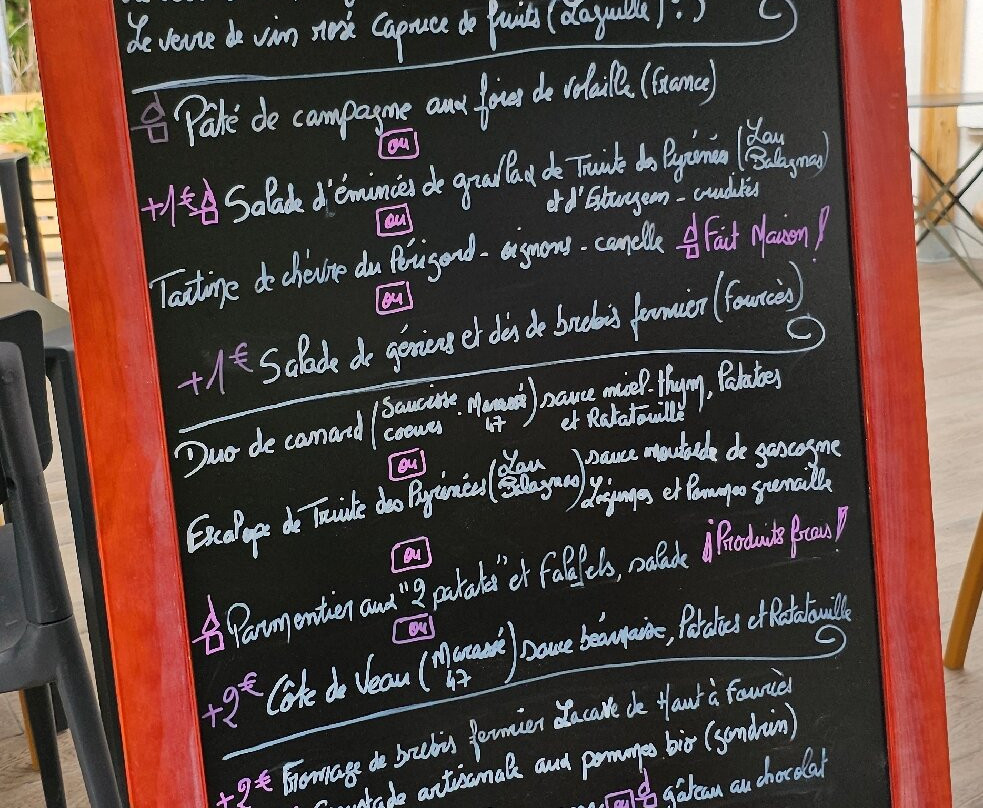 Le verre de vin rosé Caprice de fruits (Laguille)
Pâté de campagne aux foies de volaille (France)
ou
+1€ Salade d'émincés de gravlax de Truite des Pyrénées (Lau Balagnas)
et d'Esturgeon - crudités
ou
Tartine de chèvre du Périgord - oignons - canelle Fait Maison !
ou
+1€ Salade de gésiers et dés de brebis fermier (Fourcès)
Duo de canard (Saucisse coeurs Marassé 47) sauce miel-thym, Patates
et Ratatouille
ou
Escalope de Truite des Pyrénées (Lau Balagnas) sauce moutarde de gascogne
Légumes et Pommes grenaille
ou
¡Produits frais!
Parmentier aux "2 patates" et Falafels, salade
ou
+2€ Côte de Veau (Marassé 47) sauce béarnaise, Patates et Ratatouille
+2€ Fromage de brebis fermier Lacave de Haut à Fourcès
artisanale aux pommes bio (gondrin)
ou gâteau au chocolat